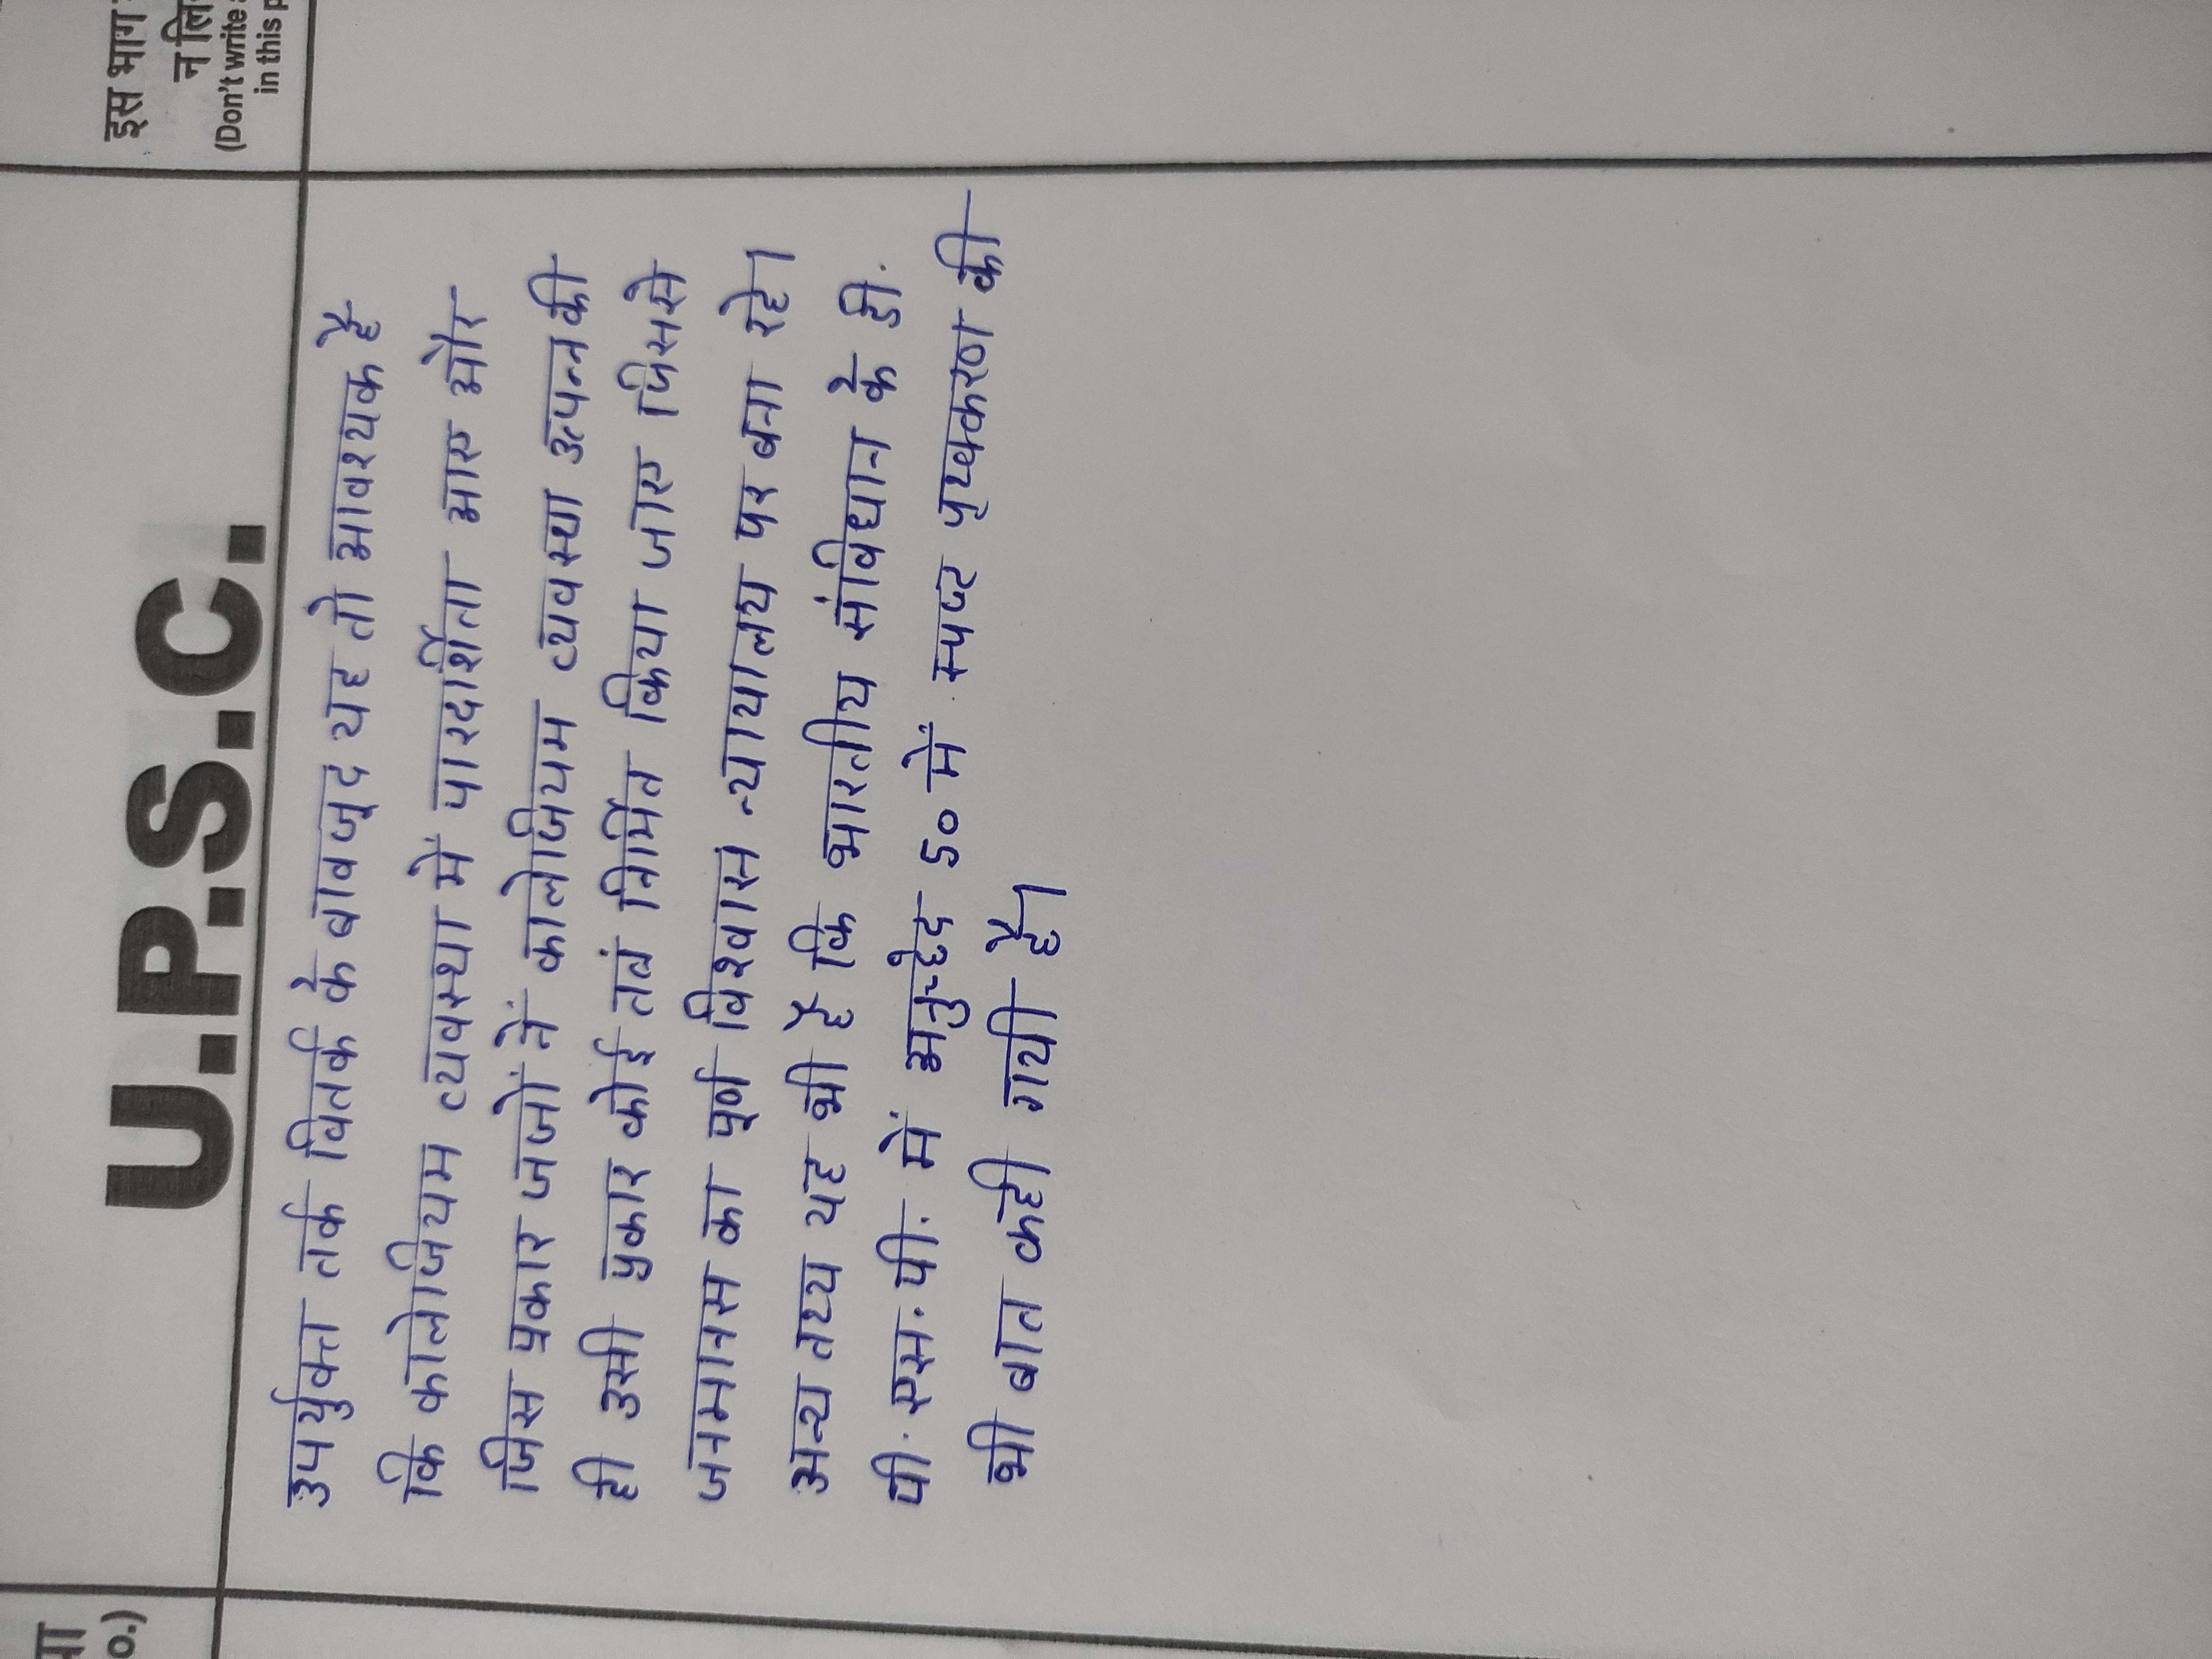 इस भाग
न लि
(Don't write
in this p
U.P.S.C.
उपर्युक्त तर्क वितर्क के बावजूद यह तो आवश्यक है
कि कालेजियम व्यवस्था में पारदर्शिता आए और
जिस प्रकार जजों नें कालेजियम व्यवस्था उत्पन्न की
ही उसी प्रकार कोई तवं निर्मित किया जाए जिससे
जनमानस का पूर्ण विश्वास न्यायालय पर बना रहे।
अन्य तथ्य यह भी है कि भारतीय संविधान के डी.
पी. एस. पी. में अनुच्छेद 50 में स्पष्ट पृथ्थकरण की
भी बात कही गयी है।
०.)